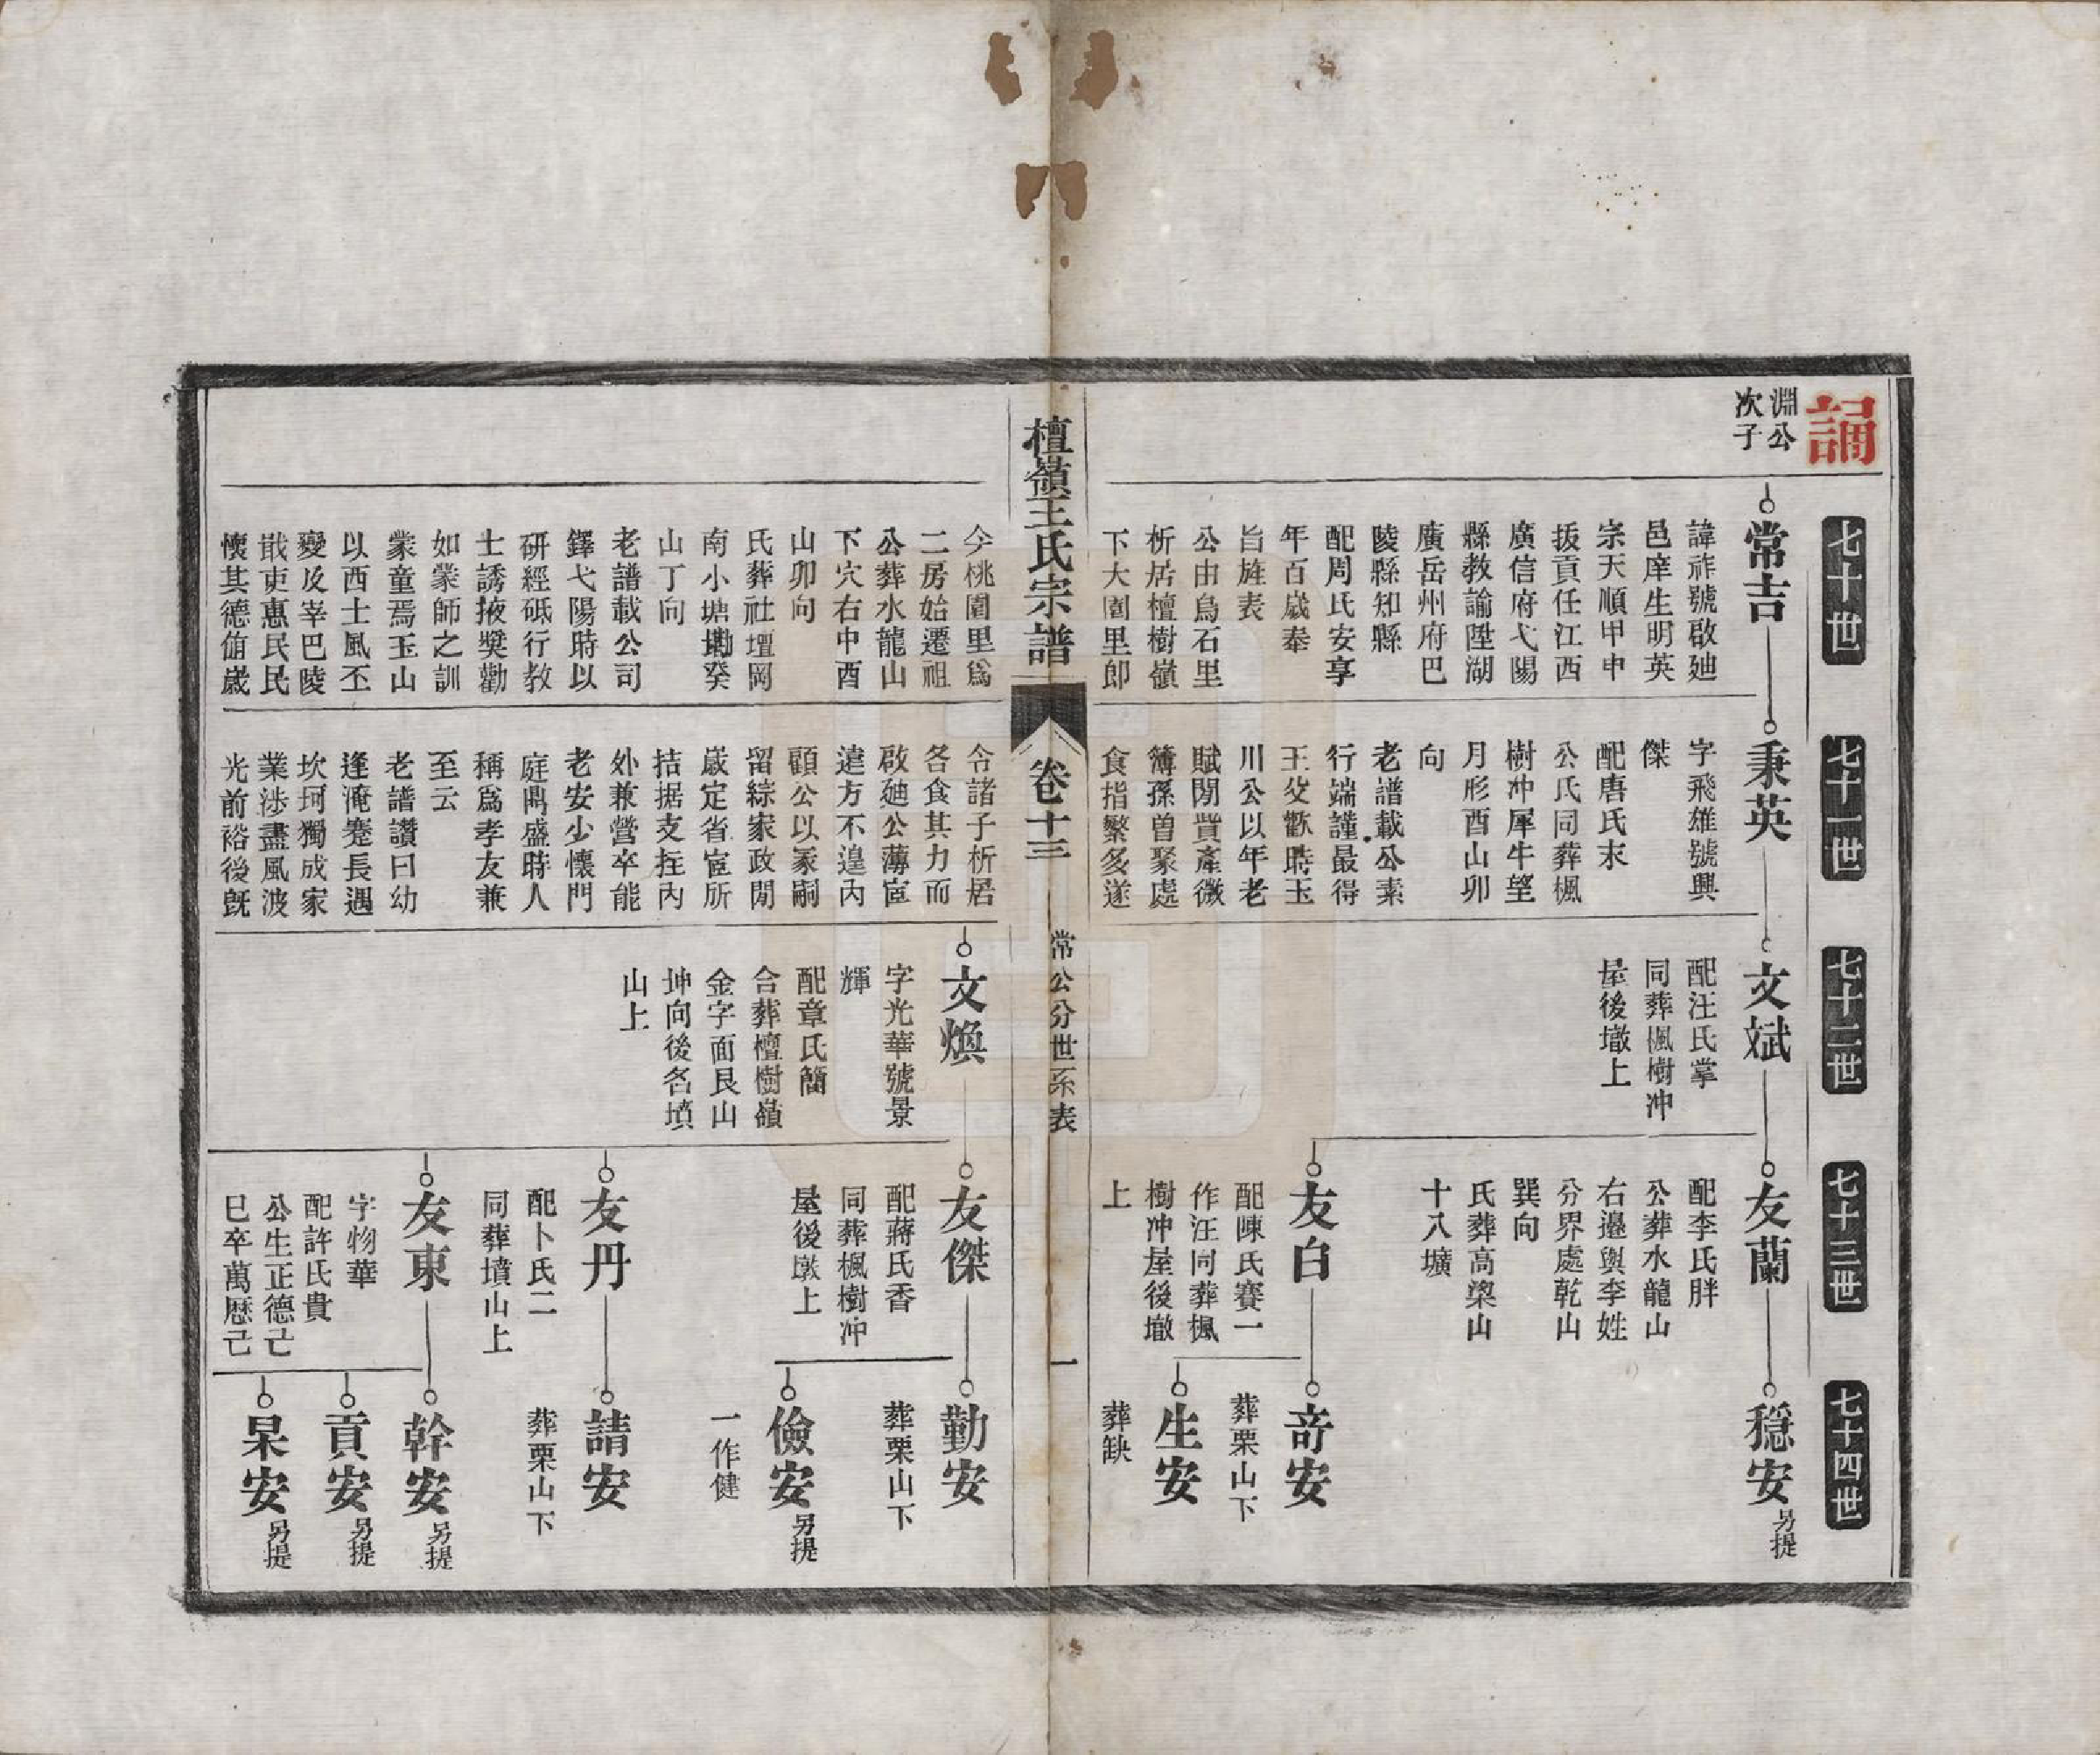 淵公
次子
七十世
七十一世
七十二世
七十三世
七十四世
常吉
諱祚號啟廸
邑庠生明英
宗天順甲申
拔貢任江西
廣信府弋陽
縣教諭陞湖
廣岳州府巴
陵縣知縣
配周氏安享
年百歲奉
旨旌表
公由烏石里
析居檀樹嶺
下大園里郎
秉英
字飛雄號興
傑
配唐氏末
公氏同葬楓
樹冲犀牛望
月形酉山卯
向
老譜載公素
行端謹最得
王父歡時玉
川公以年老
賦閒貲產微
簿孫曾聚處
食指繁多遂
文斌
配汪氏掌
同葬楓樹冲
屋後墩上
友蘭
配李氏胖
公葬水龍山
右邊與李姓
分界處乾山
巽向
氏葬高梁山
十八壙
友白
配陳氏賽一
作汪同葬楓
樹冲屋後墩
上
穩安
另提
奇安
葬栗山下
生安
葬缺
檀嶺王氏宗譜
卷十三
常公分世系表
一
今桃園里爲
二房始遷祖
公葬水龍山
下穴右中酉
山卯向
氏葬社壇岡
南小塘墈癸
山丁向
老譜載公司
鐸弋陽時以
研經砥行教
士誘掖獎勸
如蒙師之訓
蒙童焉玉山
以西士風丕
變及宰巴陵
戢吏惠民民
懷其德侑歲
令諸子析居
各食其力而
啟廸公薄宦
遠方不遑內
顧公以冢嗣
留綜家政閒
歲定省宦所
拮据支拄內
外兼營卒能
老安少懷門
庭鼎盛時人
稱爲孝友兼
至云
老譜讚曰幼
逢淹蹇長遇
坎坷獨成家
業涉盡風波
光前裕後旣
文煥
字光華號景
輝
配章氏簡
合葬檀樹嶺
金字面艮山
坤向後名墳
山上
友傑
配蔣氏香
同葬楓樹冲
屋後墩上
友丹
配卜氏二
同葬墳山上
友東
字物華
配許氏貴
公生正德己
巳卒萬厯己
勤安
葬栗山下
儉安
另提
一作健
請安
葬栗山下
幹安
另提
貢安
另提
杲安
另提